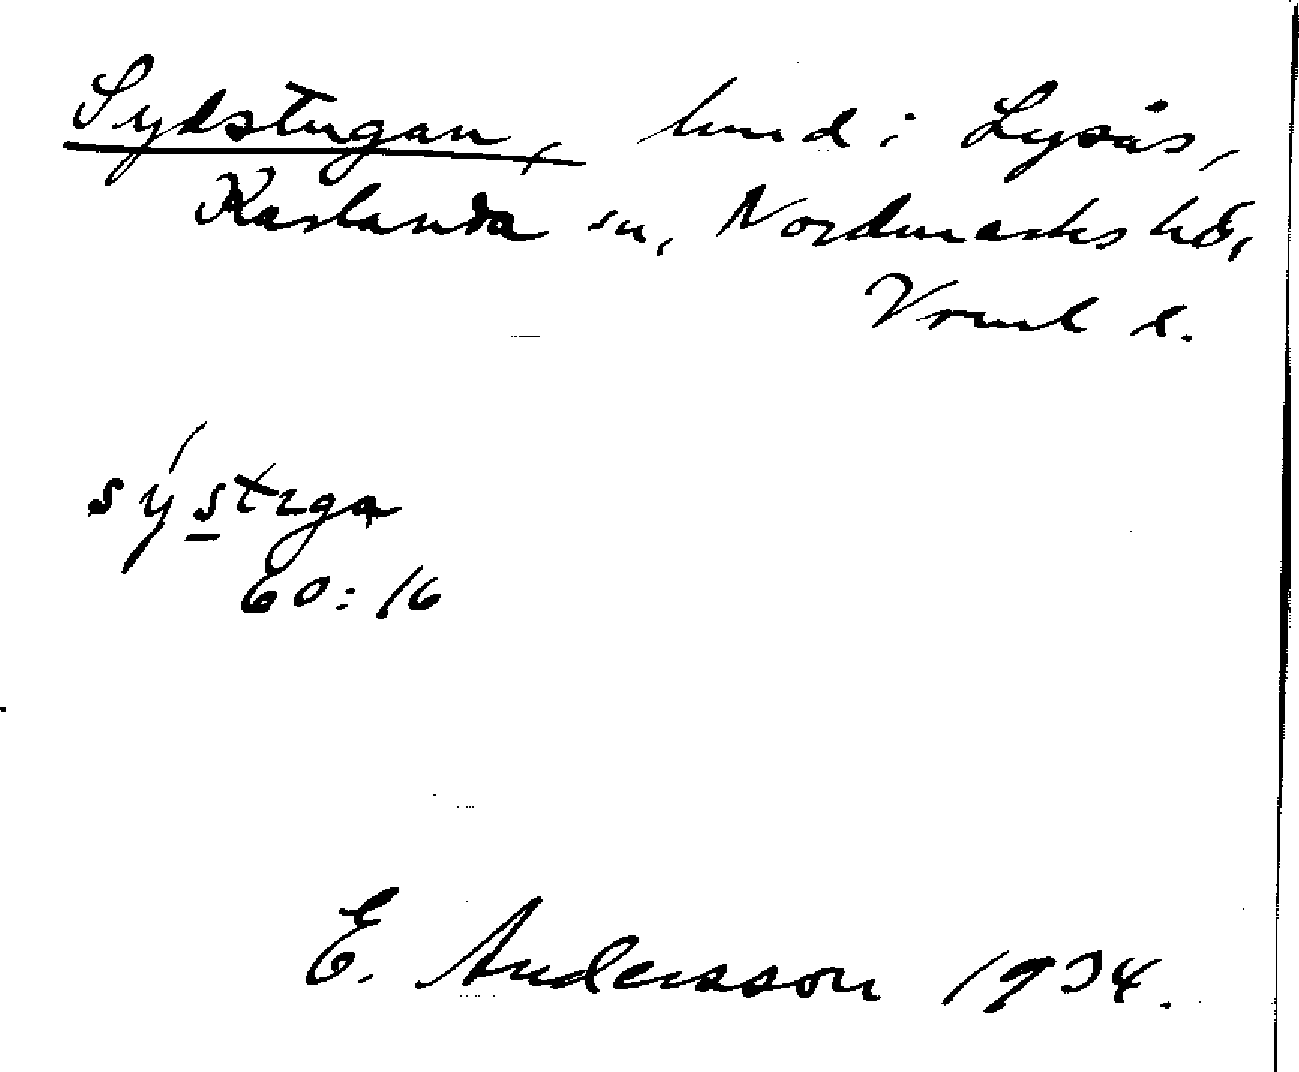 Sydstugan, lund i Lysås,
Karlanda sn, Nordmarks hd,
Vrml l.
sýstᴢga
60:16
E. Andersson 1934.